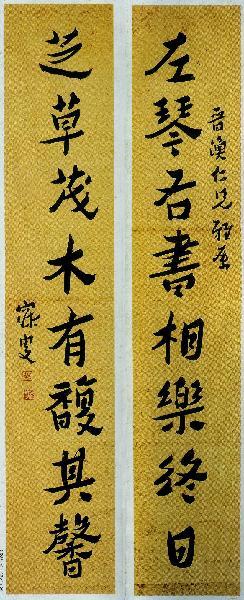 仁兄雅屬
左琴右書相樂終日
芝草茂木有馥其馨
寐叟